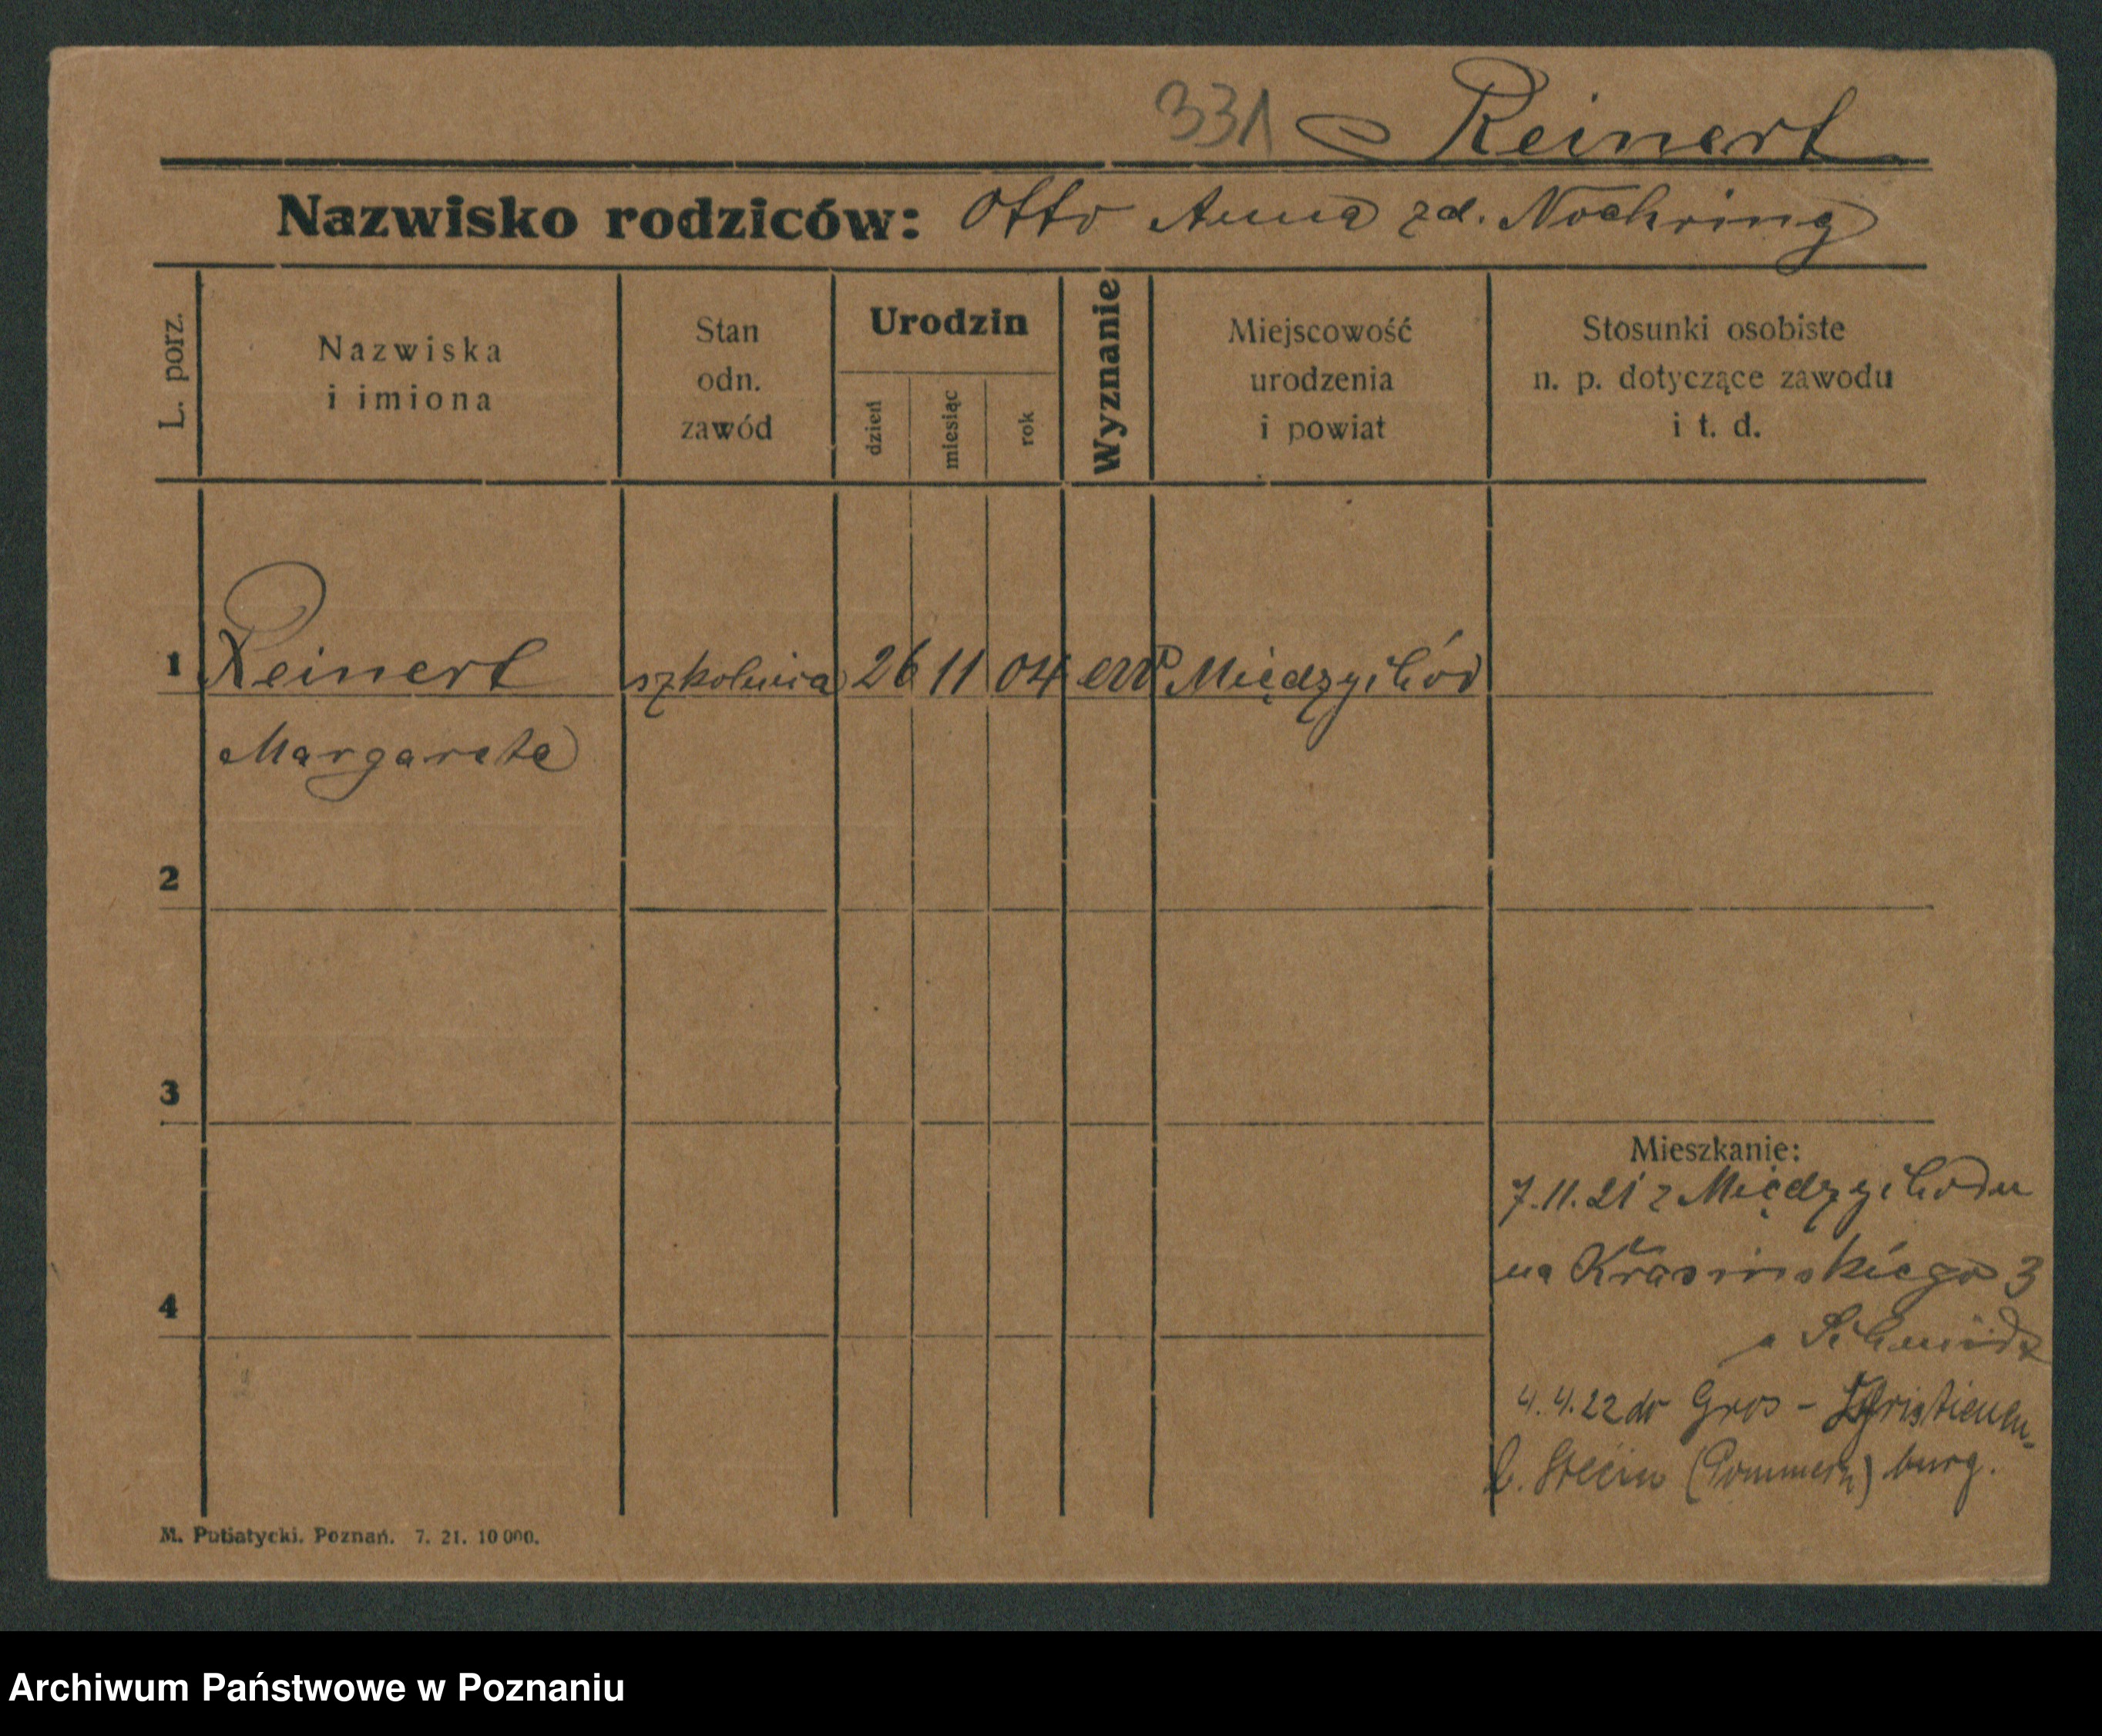 331 Reinert
Nazwisko rodziców: Otto Anna zd. Nochring
L. porz.
Nazwiska
i imiona
Stan
odn.
zawód
Urodzin
dzień
miesiąc
rok
Wyznanie
Miejscowość
urodzenia
i powiat
Stosunki osobiste
n. p. dotyczące zawodu
i t. d.
1 Reinert szkolnica 26 11 04 ew Międzychód
Margarete
2
3
4
Mieszkanie:
7.11.21 z Międzychodu
na Krasińskiego 3
a Schmidt
4.4.22 do Gros - Christienen-
b. Stecin (Pommern) burg.
M. Putiatycki. Poznań. 7. 21. 10 000.
Archiwum Państwowe w Poznaniu